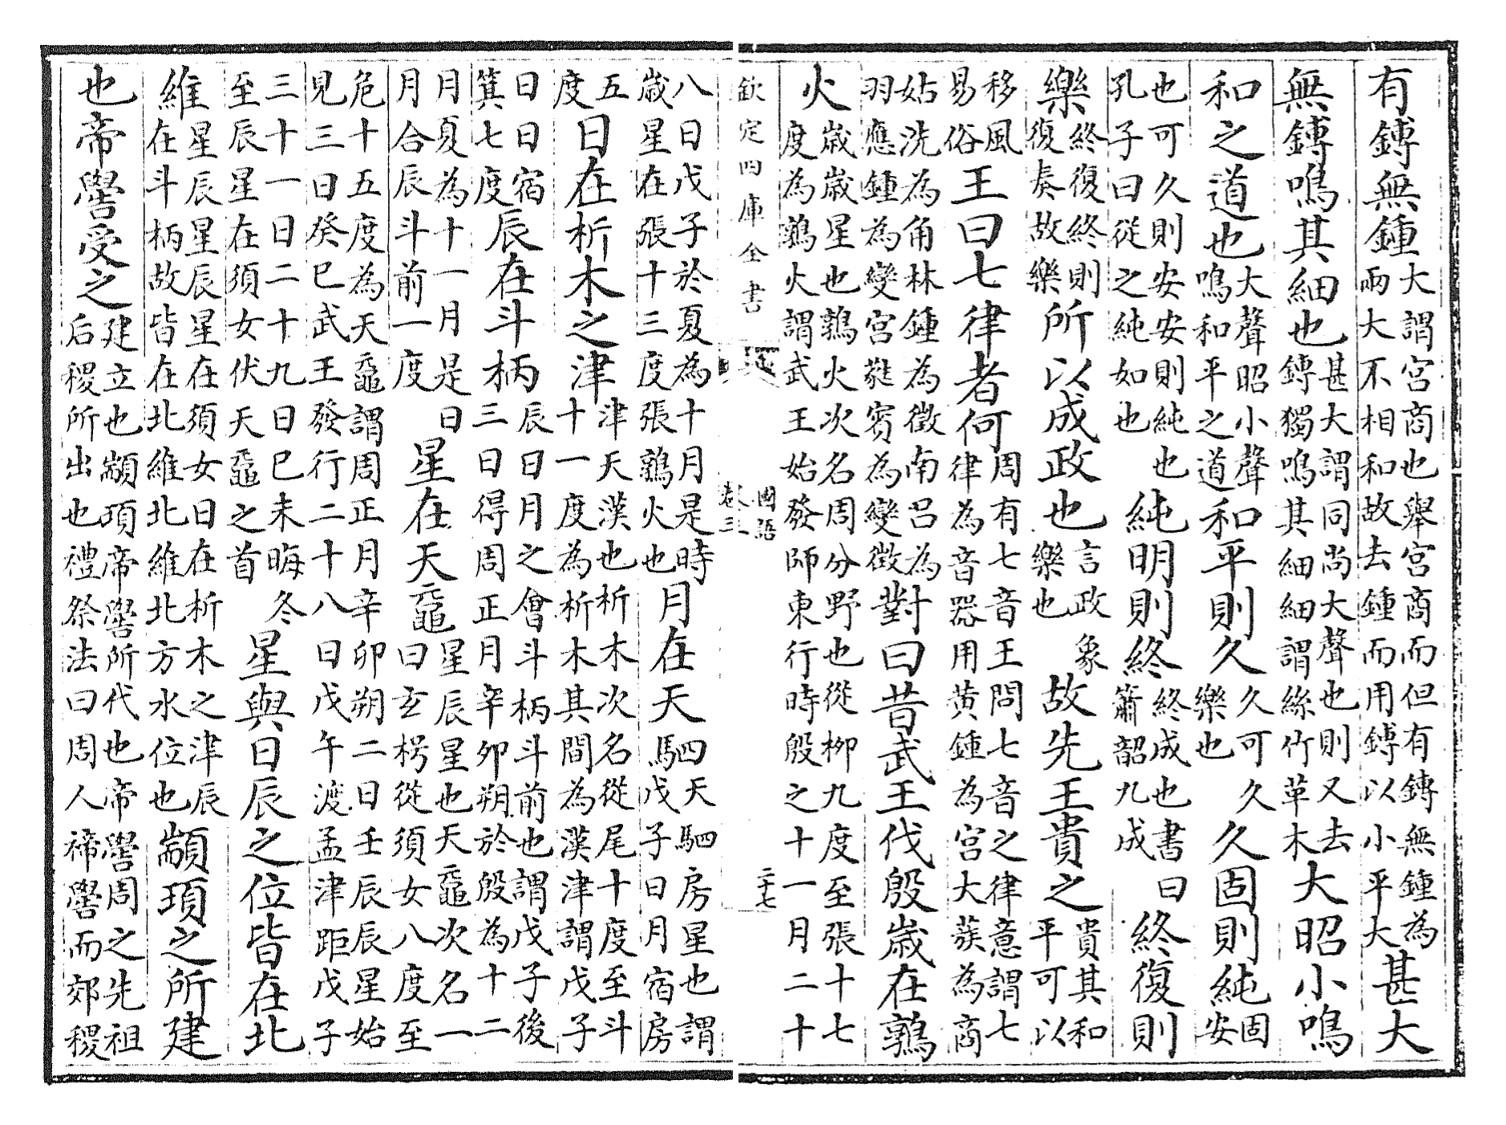 有鎛無鍾大謂宮商也舉宮商而但有鎛無鍾為兩大不相和故去鍾而用鎛以小平大甚大
無鎛鳴其細也甚大謂同尚大聲也則又去鎛獨鳴其細細謂絲竹革木大昭小鳴
和之道也大聲昭小聲鳴和平之道和平則久久可久樂也久固則純固安
也可久則安安則純也孔子曰從之純如也純明則終終成也書曰簫韶九成終復則
樂終復終則復奏故樂所以成政也言政象樂也故先王貴之貴其和平可以
移風易俗王曰七律者何周有七音王問七音之律意謂七律為音器用黃鍾為宮大蔟為商
姑洗為角林鍾為徵南呂為羽應鍾為變宮蕤賓為變徵對曰昔武王伐殷歲在鶉
火歲歲星也鶉火次名周分野也從柳九度至張十七度為鶉火謂武王始發師東行時殷之十一月二十
欽定四庫全書
國語
卷三
二十七
八日戊子於夏為十月是時歲星在張十三度張鶉火也月在天駟天駟房星也謂戊子日月宿房
五度日在析木之津津天漢也析木次名從尾十度至斗十一度為析木其間為漢津謂戊子
日日宿箕七度辰在斗柄辰日月之會斗柄斗前也謂戊子後三日得周正月辛卯朔於殷為十二
月夏為十一月是日月合辰斗前一度星在天黿星辰星也天黿次名一曰玄枵從須女八度至
危十五度為天黿謂周正月辛卯朔二日壬辰辰星始見三日癸巳武王發行二十八日戊午渡孟津距戊子
三十一日二十九日己未晦冬至辰星在須女伏天黿之首星與日辰之位皆在北
維星辰星辰星在須女日在析木之津辰在斗柄故皆在北維北維北方水位也顓頊之所建
也帝嚳受之建立也顓頊帝嚳所代也帝嚳周之先祖后稷所出也禮祭法曰周人禘嚳而郊稷